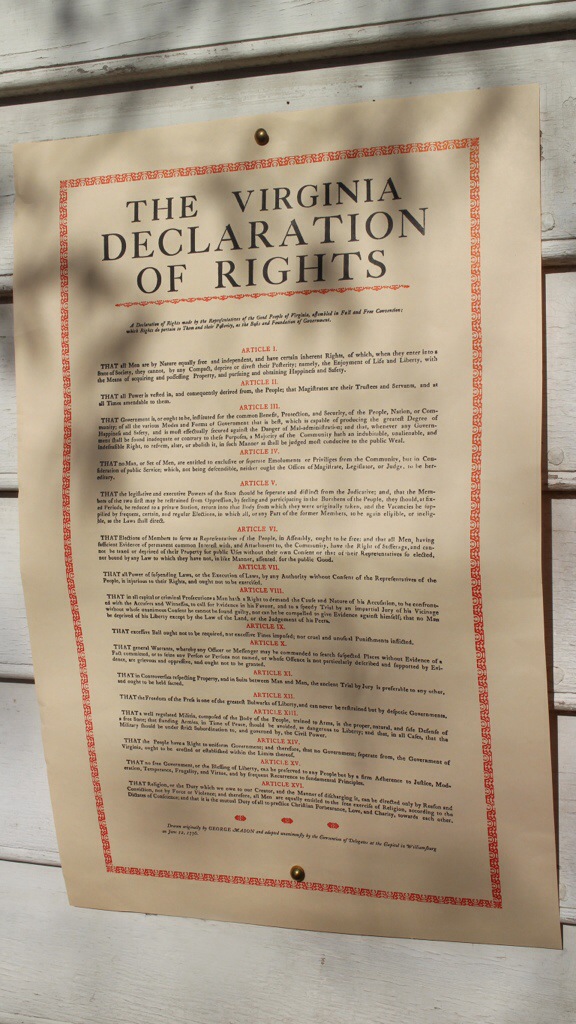 THE VIRGINIA
DECLARATION
OF RIGHTS
A Declaration of Rights made by the Repreſentatives of the Good People of Virginia, aſſembled in Full and Free Convention;
which Rights do pertain to Them and their Poſterity, as the Baſis and Foundation of Government.
ARTICLE I.
THAT all Men are by Nature equally free and independent, and have certain inherent Rights, of which, when they enter into a
State of Society, they cannot, by any Compact, deprive or diveſt their Poſterity; namely, the Enjoyment of Life and Liberty, with
the Means of acquiring and poſſeſſing Property, and purſuing and obtaining Happineſs and Safety.
ARTICLE II.
THAT all Power is veſted in, and conſequently derived from, the People; that Magiſtrates are their Truſtees and Servants, and at
all Times amendable to them.
ARTICLE III.
THAT Government is, or ought to be, inſtituted for the common Benefit, Protection, and Security, of the People, Nation, or Com-
munity; of all the various Modes and Forms of Government that is beſt, which is capable of producing the greateſt Degree of
Happineſs and Safety, and is moſt effectually ſecured againſt the Danger of Mal-adminiſtration; and that, whenever any Govern-
ment ſhall be found inadequate or contrary to theſe Purpoſes, a Majority of the Community hath an indubitable, unalienable, and
indefeaſible Right, to reform, alter, or aboliſh it, in ſuch Manner as ſhall be judged moſt conducive to the public Weal.
ARTICLE IV.
THAT no Man, or Set of Men, are entitled to excluſive or ſeparate Emoluments or Privileges from the Community, but in Con-
ſideration of public Service; which, not being deſcendible, neither ought the Offices of Magiſtrate, Legiſlator, or Judge, to be her-
editary.
ARTICLE V.
THAT the legiſlative and executive Powers of the State ſhould be ſeparate and diſtinct from the Judicative; and, that the Mem-
bers of the two firſt may be reſtrained from Oppreſſion, by feeling and participating in the Burthens of the People, they ſhould, at fix-
ed Periods, be reduced to a private Station, return into that Body from which they were originally taken, and the Vacancies be ſup-
plied by frequent, certain, and regular Elections, in which all, or any Part of the former Members, to be again eligible, or ineligi-
ble, as the Laws ſhall direct.
ARTICLE VI.
THAT Elections of Members to ſerve as Repreſentatives of the People, in Aſſembly, ought to be free; and that all Men, having
ſufficient Evidence of permanent common Intereſt with, and Attachment to, the Community, have the Right of Suffrage, and can-
not be taxed or deprived of their Property for public Uſes without their own Conſent or that of their Repreſentatives ſo elected,
nor bound by any Law to which they have not, in like Manner, aſſented, for the public Good.
ARTICLE VII.
THAT all Power of ſuſpending Laws, or the Execution of Laws, by any Authority without Conſent of the Repreſentatives of the
People, is injurious to their Rights, and ought not to be exerciſed.
ARTICLE VIII.
THAT in all capital or criminal Proſecutions a Man hath a Right to demand the Cauſe and Nature of his Accuſation, to be confront-
ed with the Accuſers and Witneſſes, to call for Evidence in his Favour, and to a ſpeedy Trial by an impartial Jury of his Vicinage
without whoſe unanimous Conſent he cannot be found guilty, nor can he be compelled to give Evidence againſt himſelf; that no Man
be deprived of his Liberty except by the Law of the Land, or the Judgement of his Peers.
ARTICLE IX.
THAT exceſſive Bail ought not to be required, nor exceſſive Fines impoſed; nor cruel and unuſual Puniſhments inflicted.
ARTICLE X.
THAT general Warrants, whereby any Officer or Meſſenger may be commanded to ſearch ſuſpected Places without Evidence of a
Fact committed, or to ſeize any Perſon or Perſons not named, or whoſe Offence is not particularly deſcribed and ſupported by Evi-
dence, are grievous and oppreſſive, and ought not to be granted.
ARTICLE XI.
THAT in Controverſies reſpecting Property, and in Suits between Man and Man, the ancient Trial by Jury is preferable to any other,
and ought to be held ſacred.
ARTICLE XII.
THAT the Freedom of the Preſs is one of the greateſt Bulwarks of Liberty, and can never be reſtrained but by deſpotic Governments.
ARTICLE XIII.
THAT a well regulated Militia, compoſed of the Body of the People, trained to Arms, is the proper, natural, and ſafe Defenſe of
a free State; that ſtanding Armies, in Time of Peace, ſhould be avoided, as dangerous to Liberty; and that, in all Caſes, that the
Military ſhould be under ſtrict Subordination to, and governed by, the Civil Power.
ARTICLE XIV.
THAT the People have a Right to uniform Government; and therefore, that no Government, ſeparate from, the Government of
Virginia, ought to be erected or eſtabliſhed within the Limits thereof.
ARTICLE XV.
THAT no free Government, or the Bleſſing of Liberty, can be preſerved to any People but by a firm Adherence to Juſtice, Mod-
eration, Temperance, Frugality, and Virtue, and by frequent Recurrence to fundamental Principles.
ARTICLE XVI.
THAT Religion, or the Duty which we owe to our Creator, and the Manner of diſcharging it, can be directed only by Reaſon and
Conviction, not by Force or Violence; and therefore, all Men are equally entitled to the free exerciſe of Religion, according to the
Dictates of Conſcience; and that it is the mutual Duty of all to practice Chriſtian Forbearance, Love, and Charity, towards each other.
Drawn originally by GEORGE MASON and adopted unanimouſly by the Convention of Delegates at the Capitol in Williamſburg
on June 12, 1776.